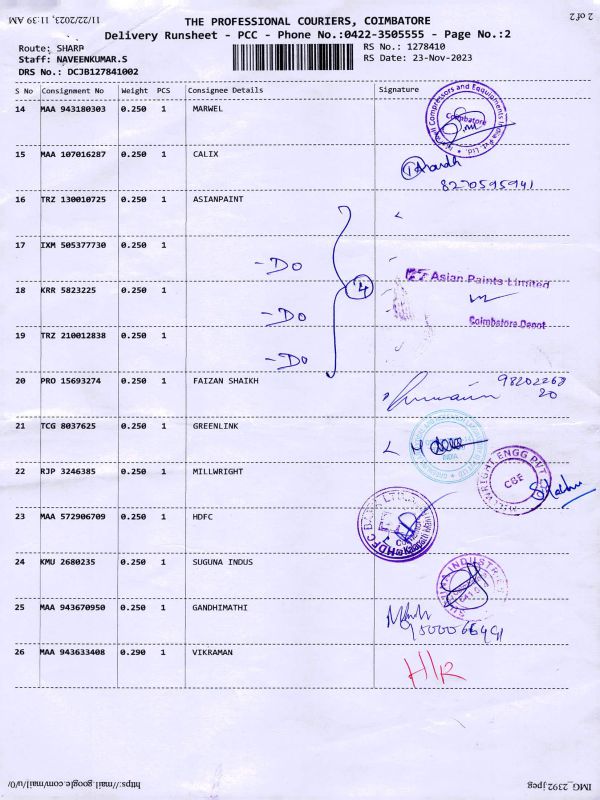 11/22/2023, 11:39 AM
2 of 2
THE PROFESSIONAL COURIERS, COIMBATORE
Delivery Runsheet - PCC - Phone No.:0422-3505555 - Page No.:2
Route: SHARP
RS No.: 1278410
Staff: NAVEENKUMAR.S
RS Date: 23-Nov-2023
DRS No.: DCJB127841002
S No Consignment No Weight PCS Consignee Details Signature
14 MAA 943180303 0.250 1 MARWEL
Coimbatore
15 MAA 107016287 0.250 1 CALIX
8270595941
16 TRZ 130010725 0.250 1 ASIANPAINT
17 IXM 505377730 0.250 1
-Do
Asian Paints Limited
18 KRR 5823225 0.250 1
4
-Do
Coimbatore Depot
19 TRZ 210012838 0.250 1
-Do
20 PRO 15693274 0.250 1 FAIZAN SHAIKH
21 TCG 8037625 0.250 1 GREENLINK
22 RJP 3246385 0.250 1 MILLWRIGHT
MILLWRIGHT ENGG PVT
CBE
23 MAA 572906709 0.250 1 HDFC
HDFC BANK LTD
24 KMU 2680235 0.250 1 SUGUNA INDUS
25 MAA 943670950 0.250 1 GANDHIMATHI
26 MAA 943633408 0.290 1 VIKRAMAN
H/R
https://mail.google.com/mail/u/0/
IMG_2392.jpeg